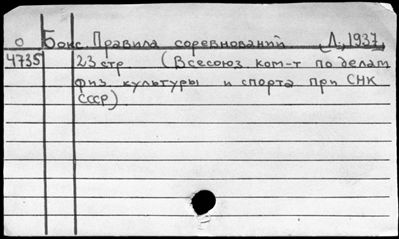 О Бокс. Правила соревнований. Л., 1937,
4735 23 стр. (Всесоюз. ком-т по делам
физ. культуры и спорта при СНК
СССР).